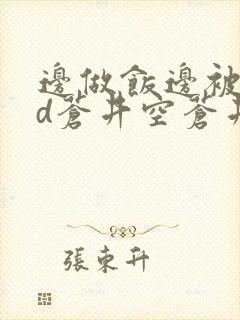 邊做飯邊被
d蒼井空蒼井
張東升